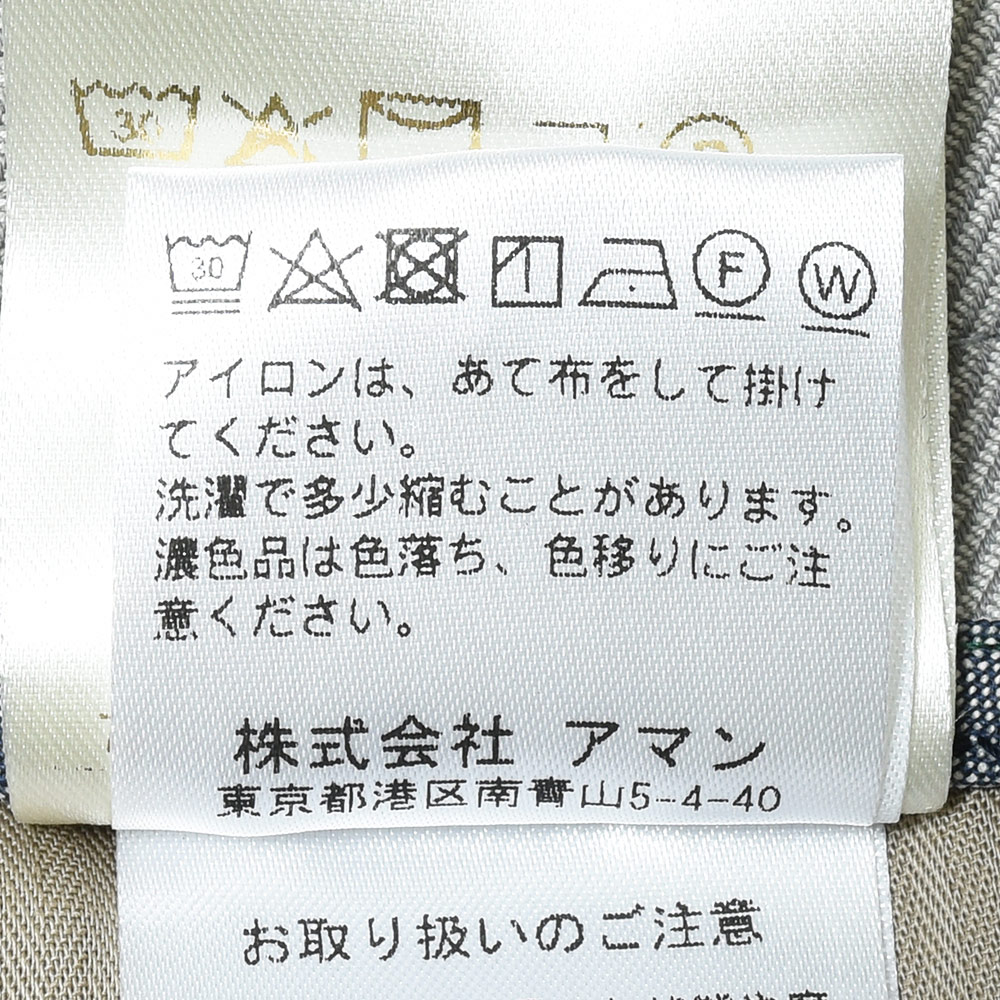 30
30
F W
アイロンは、あて布をして掛け
てください。
洗濯で多少縮むことがあります。
濃色品は色落ち、色移りにご注
意ください。
株式会社 アマン
東京都港区南青山5-4-40
お取り扱いのご注意